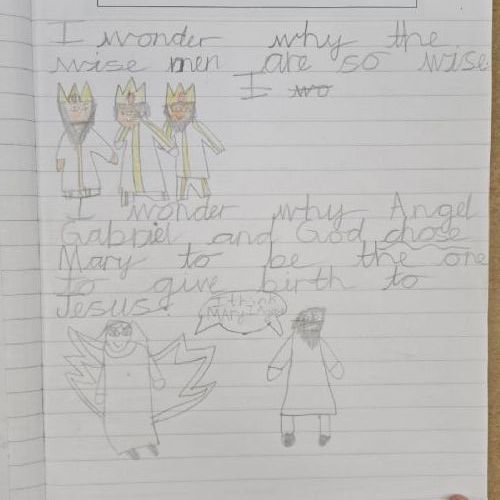 I wonder why the
wise men are so wise
I wo
I wonder why Angel
Gabriel and God chose
Mary to be the one
to give birth to
Jesus.
I think
MARY